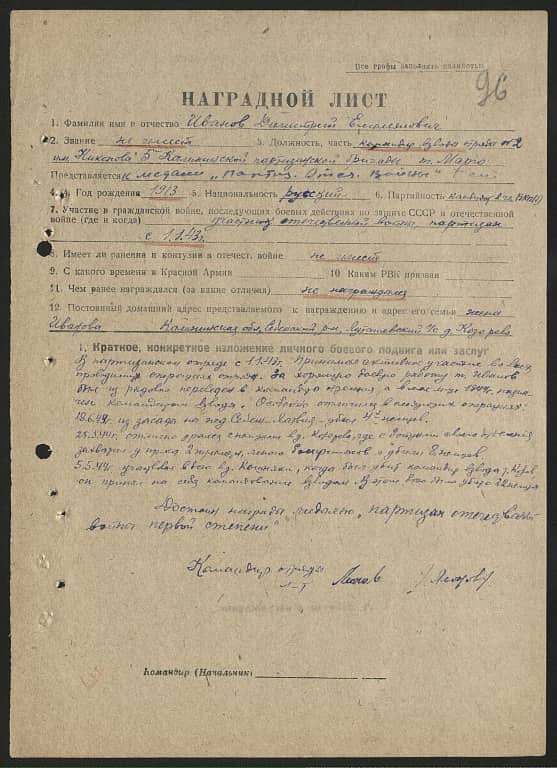 Все графы заполнять полностью
96
НАГРАДНОЙ ЛИСТ
1. Фамилия имя и отчество Иванов Дмитрий Емельянович
2. Звание не имеет 3. Должность, часть командир взвода отряда №2
5 Калининской партизанской бригады т. Марго
Представляется к медали „Партиз. Отеч. Войны" I ст
4. Год рождения 1913 5. Национальность русский 6. Партийность кандидат ВКП(б)
7. Участие в гражданской войне, последующих боевых действиях по защите СССР и отечественной
войне (где и когда) участник отечественной войны, партизан
с 1.1.43г.
8. Имеет ли ранения и контузии в отечест. войне не имеет
9. С какого времени в Красной Армии 10 Каким РВК призван
11. Чем ранее награждался (за какие отличия) не награждался
12. Постоянный домашний адрес представляемого к награждению и адрес его семьи жена
Иванова Калининская обл, Себежский рон, с/с д. Козорезо
1. Краткое, конкретное изложение личного боевого подвига или заслуг
В партизанском отряде с 1.1.43г. Принимал активное участие во всех
проводимых операциях отряда. За хорошую боевую работу т. Иванов
был из рядовых переведен в командира отделения, а в 1944г. назна-
чен командиром взвода. Особенно отличился в следующих операциях:
из засады на жд Себеж-Латвия убил 4х немцев.
отлично дрался с немцами
захватил у врага и убили
5.5.44г. участвовал в бою когда был убит командир взвода т.
он принял на себя командование взводом. В этом бою был убито 2 немца
Достоин награды медалью „партизан отечествен
войны первой степени"
Командир отряда
Л-т
Командир (Начальник)